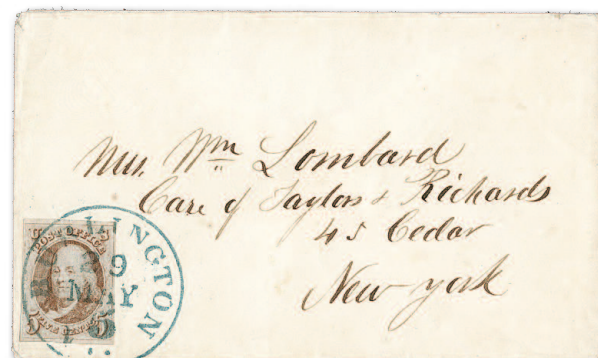 Mrs. Wm Lombard
Care of Taylor & Richards
45 Cedar
New York
BURLINGTON
29
MAY
5
POST OFFICE
5 5
FIVE CENTS